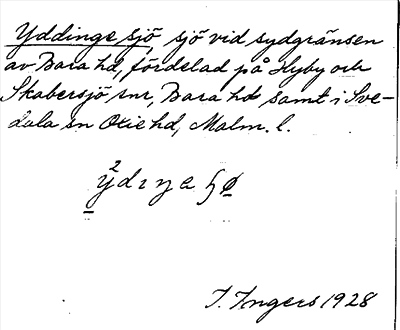 Yddinge sjö, sjö vid sydgränsen
av Bara hd, fördelad på Hyby och
Skabersjö snr, Bara hd samt i Sve-
dala sn Oxie hd, Malm. l.
I. Ingers 1928